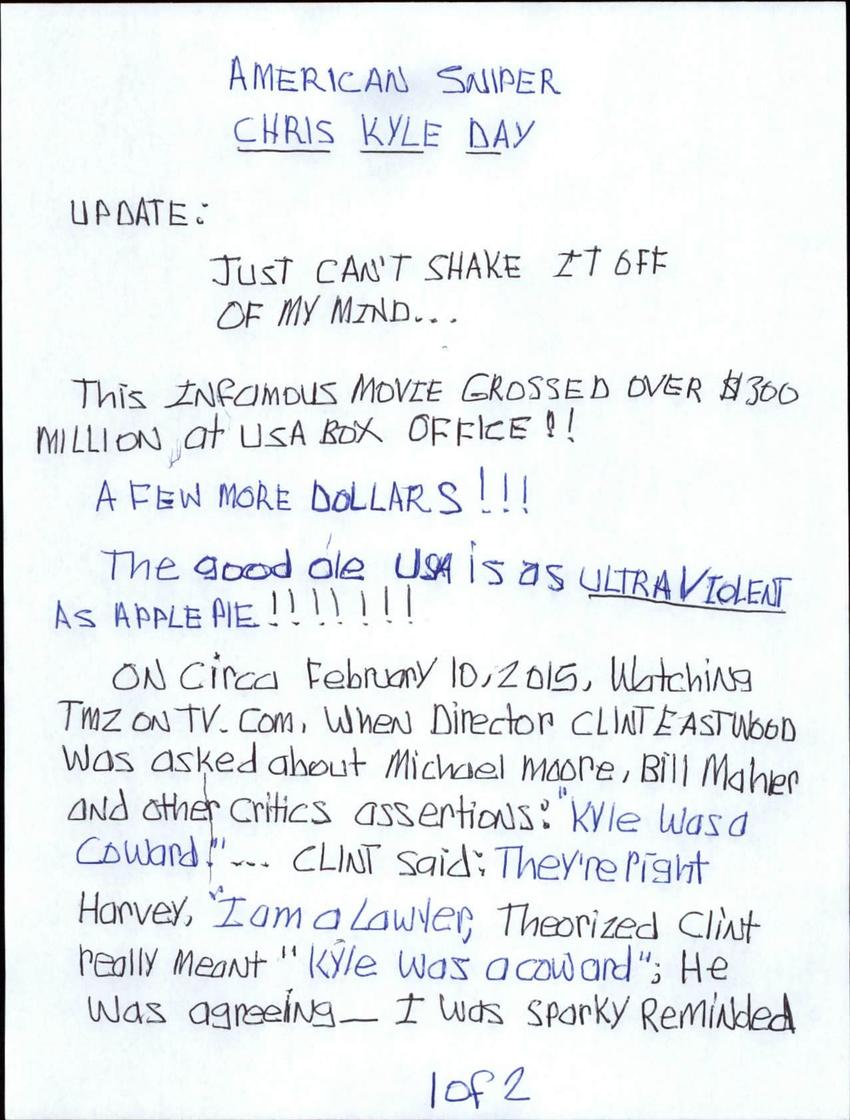 AMERICAN SNIPER
CHRIS KYLE DAY
UPDATE:
JUST CAN'T SHAKE IT OFF
OF MY MIND...
This INFAMOUS MOVIE GROSSED OVER $300
MILLION, at USA BOX OFFICE!!
A FEW MORE DOLLARS!!!
The good ole USA is as ULTRA VIOLENT
AS APPLE PIE!!!!!!!
ON Circa February 10, 2015, Watching
TMZ ON TV. Com, When Director CLINT EASTWOOD
Was asked about Michael Moore, Bill Maher
and other Critics assertions: "Kyle Was a
Coward!"... CLINT said: They're right
Harvey, "I am a Lawyer, Theorized Clint
really Meant "Kyle Was a coward"; He
Was agreeing— I Was sparky Reminded
1 of 2